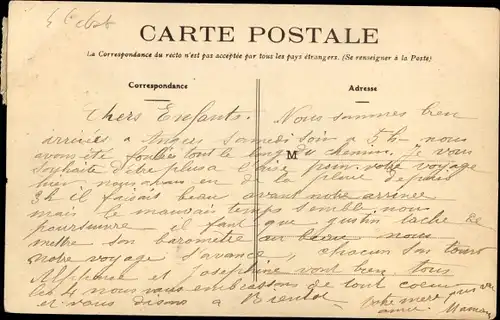 CARTE POSTALE
La Correspondance du recto n'est pas acceptée par tous les pays étrangers. (Se renseigner à la Poste)
Correspondance
Adresse
M
Chers Enfants. Nous sommes bien
arrivés a samedi soir a 5 h nous
avons été foulés tout le long du chemin. Je vous
souhaite d'être plus a l'aise pour votre voyage
hier nous avons eu de la pluie depuis
3h il faisait beau avant notre arrivée
mais le mauvais temps semble nous
poursuivre il faut que justin tache de
mettre son baromètre au beau nous
notre voyage s'avance, chacun son tour
Alphonse et Joséphine vont bien tous
les 4 nous vous embrassons de tout coeur
et vous disons a Bientot votre mere
aime Maman